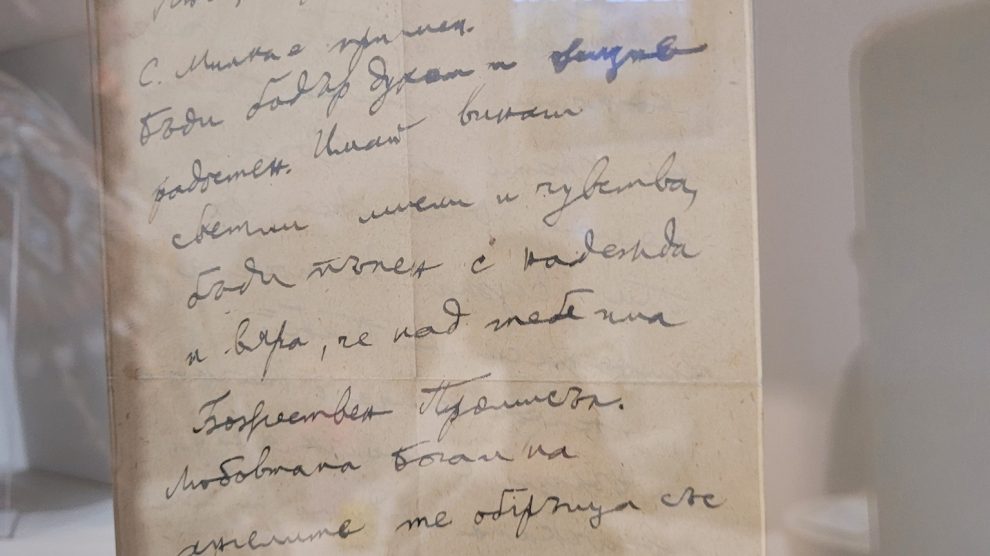 С. Милка е при мен.
Бъди бодър духом и
радостен. Имай винаги
светли мисли и чувства,
бъди пълен с надежда
и вяра, че над тебе има
Божествен Промисъл.
Любовта на Бога и на
ангелите те обгръща със